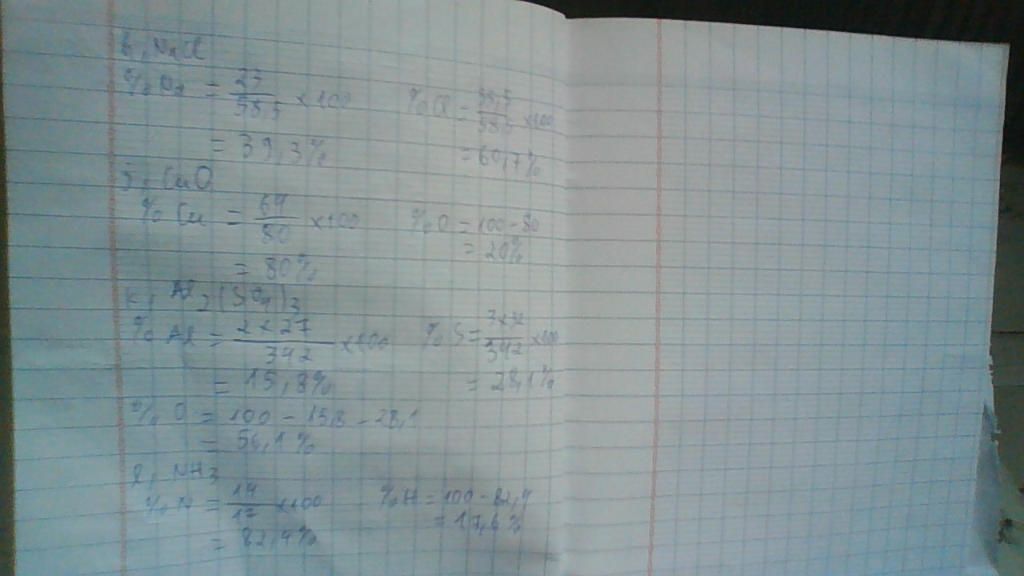 NaCl
% Na = 23/58,5 × 100    % Cl = 35,5/58,5 × 100
= 39,3%    = 60,7%
j, CuO
% Cu = 64/80 × 100    % O = 100 - 80
= 80%    = 20%
k, Al2(SO4)3
% Al = 2×27/342 × 100    % S = 3×32/342 × 100
= 15,8%    = 28,1%
% O = 100 - 15,8 - 28,1
= 56,1%
l, NH3
% N = 14/17 × 100    % H = 100 - 82,4
= 82,4%    = 17,6%